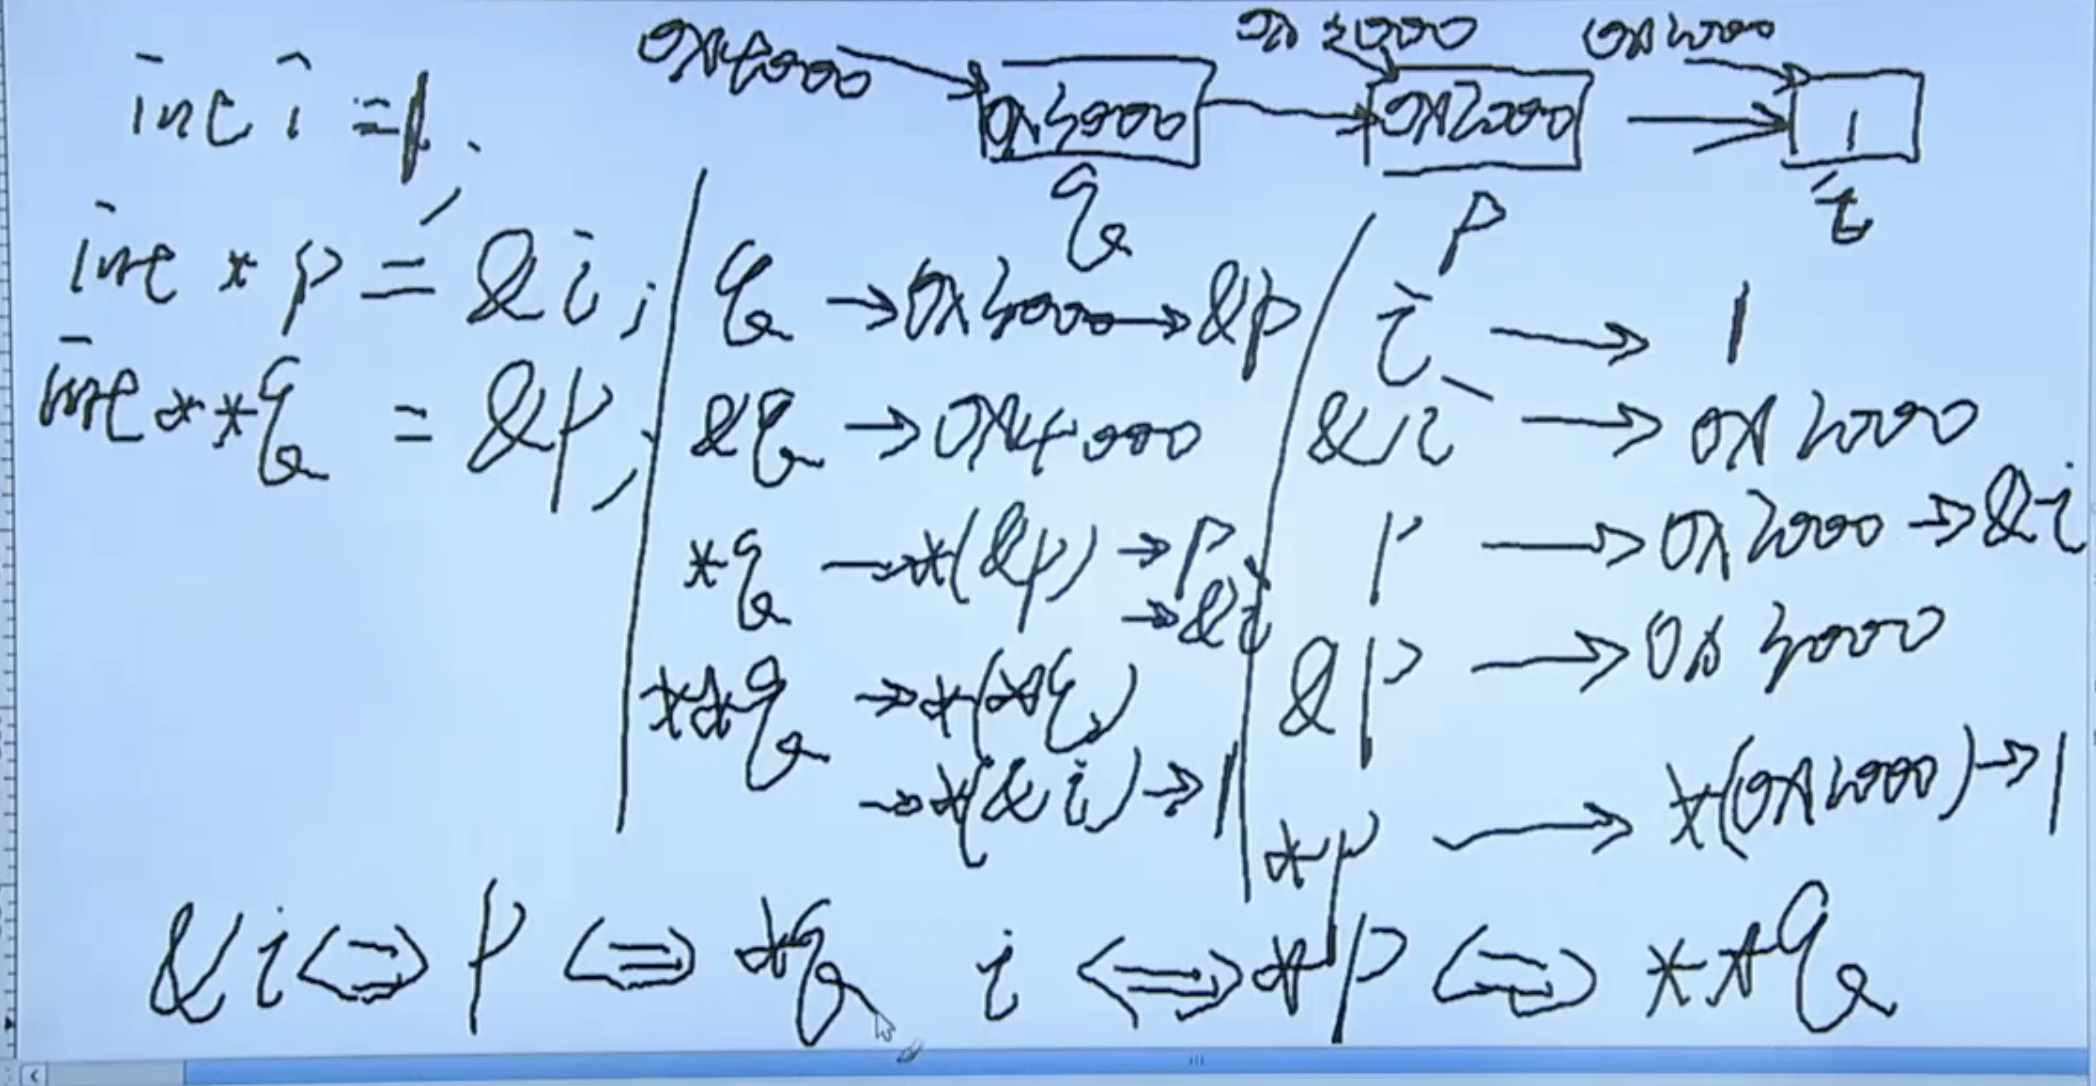 0x4000 0x3000 0x2000
int i = 1;
0x3000 0x2000 1
q p i
int *p = &i;
int **q = &p;
q → 0x3000 → &p
&q → 0x4000
*q → *(&p) → p
→ &i
**q → *(*q)
→ *(&i) → 1
i → 1
&i → 0x2000
p → 0x2000 → &i
&p → 0x3000
*p → *(0x2000) → 1
&i ⇔ p ⇔ *q i ⇔ *p ⇔ **q